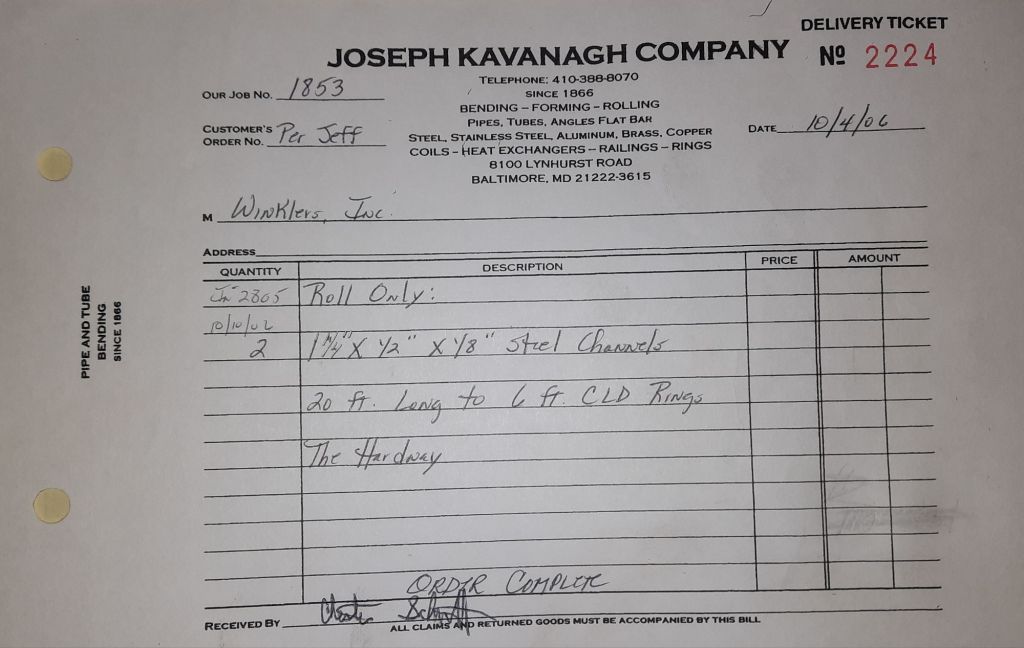 DELIVERY TICKET
JOSEPH KAVANAGH COMPANY
Nº 2224
TELEPHONE: 410-388-8070
SINCE 1866
OUR JOB NO. 1853
BENDING – FORMING – ROLLING
PIPES, TUBES, ANGLES FLAT BAR
CUSTOMER'S ORDER NO. Per Jeff
DATE 10/4/06
STEEL, STAINLESS STEEL, ALUMINUM, BRASS, COPPER
COILS – HEAT EXCHANGERS – RAILINGS – RINGS
8100 LYNHURST ROAD
BALTIMORE, MD 21222-3615
M Winklers, Inc.
ADDRESS
QUANTITY DESCRIPTION PRICE AMOUNT
2805 Roll Only:
2 1 1/4" X 1/2" X 1/8" Steel Channels
20 ft. Long to 6 ft. CLD Rings
The Hardway
ORDER COMPLETE
RECEIVED BY
ALL CLAIMS AND RETURNED GOODS MUST BE ACCOMPANIED BY THIS BILL
PIPE AND TUBE
BENDING
SINCE 1866